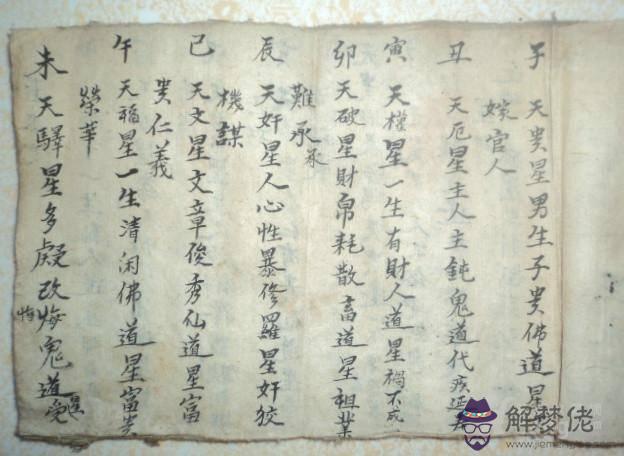 子 天贵星男生子贵佛道星
嫁官人
丑 天厄星主人主鈍鬼道代疾延寿
寅 天權星一生有財人道星禍不成
卯 天破星財帛耗散畜道星祖業
難承承
辰 天奸星人心性暴修羅星奸狡
機謀
巳 天文星文章俊秀仙道星富
贵仁義
午 天福星一生清闲佛道星富贵
榮華
未 天驛星多疑改悔鬼道受
悔
解梦佬
www.jiemenglao.com